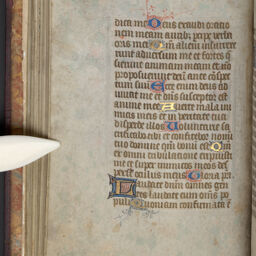 dica me Deus exaudi oratio
nem meam auribz pcipe verba
oris mei Qm alieni insurrexe
runt adversum me et fortes q
sierunt animam meam et nō
proposuerunt deū ante cōspec
tum suū Ecce enim deus ad
iuvat me et dns susceptor est
anime mee Averte mala ini
micis meis et in veritate tua
disperde illos Voluntarie sa
crificabo tibi et confitebor nomi
tuo domine qm bonū est Qm
ex omni tribulatione eripuisti
me et super inimicos meos des
pexit oculus meus Gloria pr
Laudate dnm omnes gen
tes laudate eum oms po
puli Quoniam confirmata ē